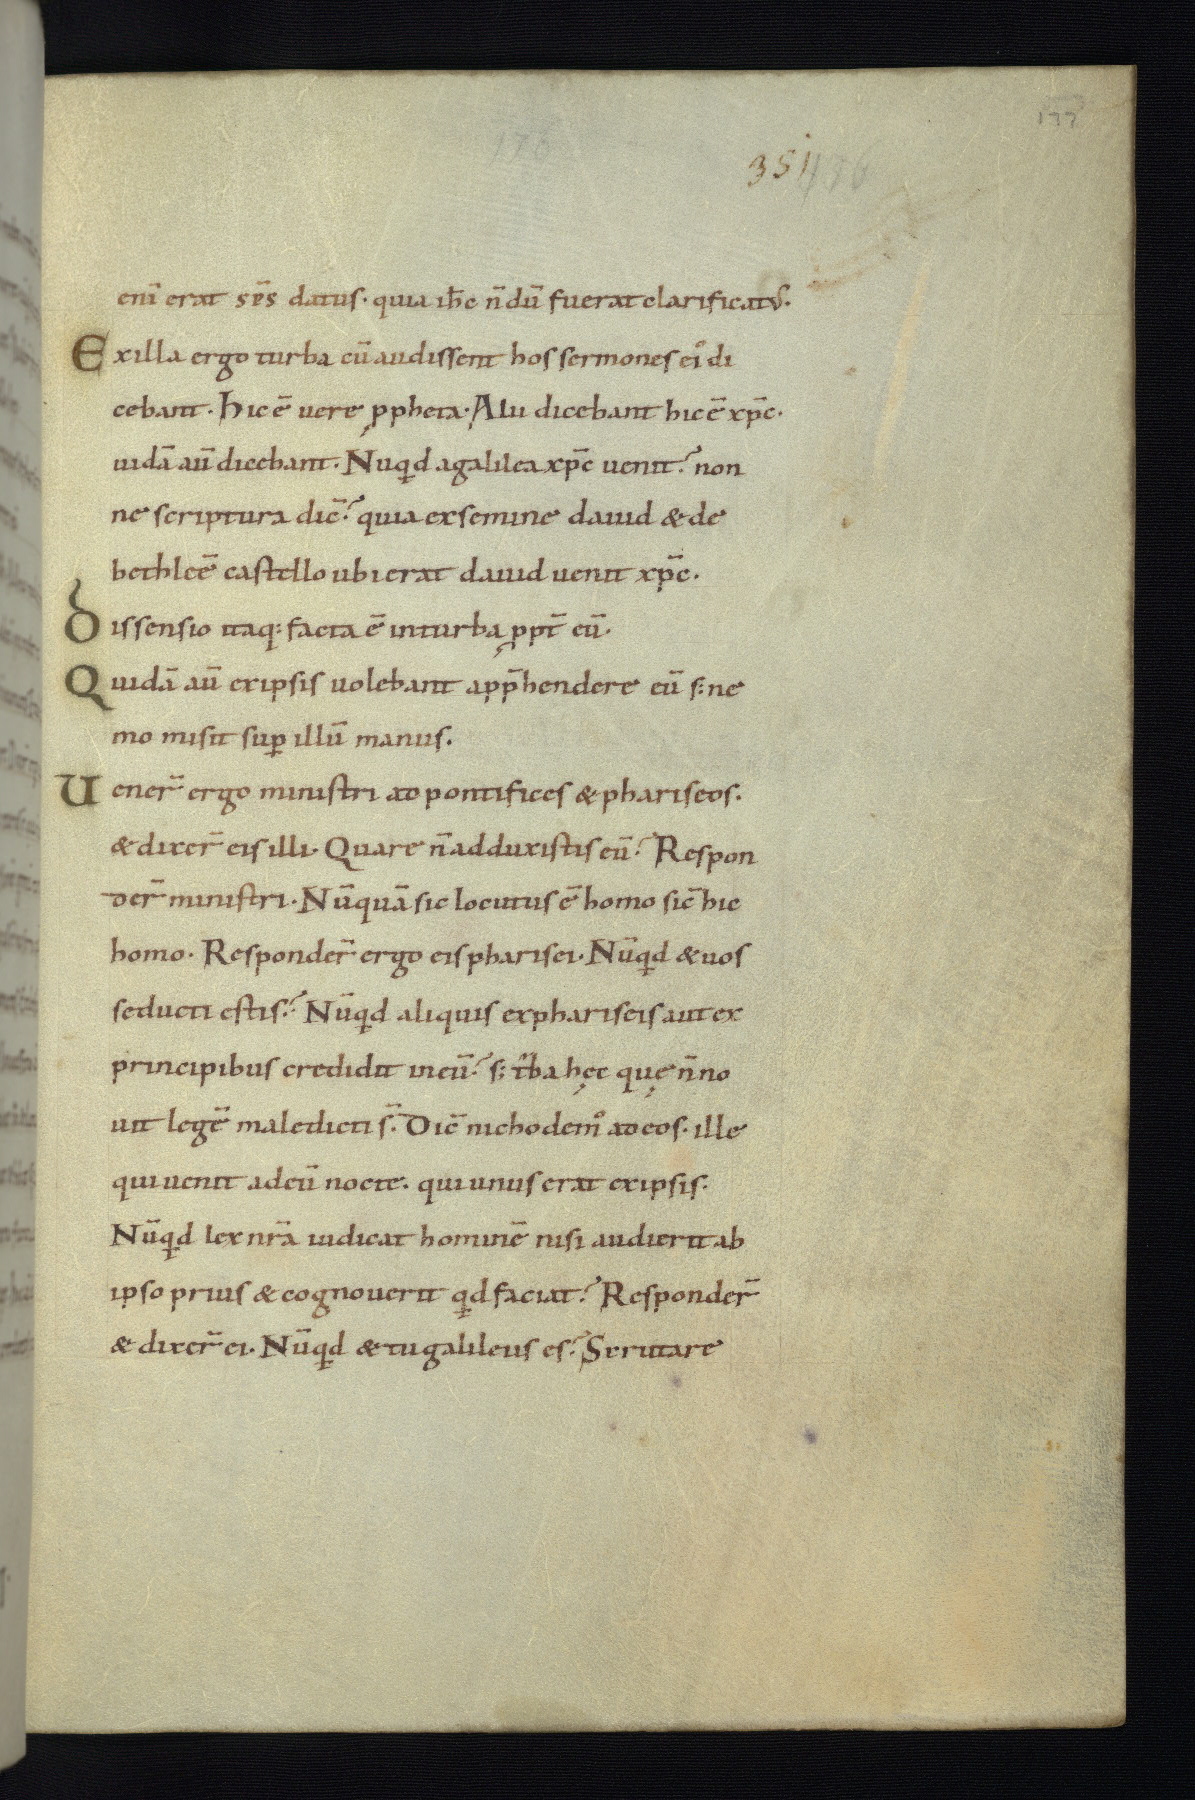 177
176
351 176
eni̅ erat sp̅s datus. quia ih̅c n̅du̅ fuerat clarificatus.
Ex illa ergo turba cu̅ audissent hos sermones ei᷒ di
cebant. Hic e̅ uere ꝓpheta. Alii dicebant hic e̅ xp̅c.
uida̅ au̅ dicebant. Nuqͥd a galilea xp̅c uenit? non
ne scriptura dic̅? quia ex semine dauid & de
bethlee̅ castello ubi erat dauid uenit xp̅c.
Dissensio itaq: facta e̅ in turba ꝓpt̅ eu̅.
Quida̅ au̅ ex ipsis uolebant app̅hendere eu̅ s: ne
mo misit suꝑ illu̅ manus.
Uener̅ ergo ministri ad pontifices & phariseos.
& dixer̅ eis illi. Quare n̅ adduxistis eu̅? Respon
der̅ ministri. Nu̅qua̅ sic locutus e̅ homo sic̅ hic
homo. Responder̅ ergo eis pharisei. Nu̅qͥd & uos
seducti estis? Nu̅qͥd aliquis ex phariseis aut ex
principibus credidit in eu̅? s; t̉ba hęc quę n̅ no
uit lege̅ maledicti s̅. Dic̅ nichodem᷒ ad eos. ille
qui uenit ad eu̅ nocte. qui unus erat ex ipsis.
Nu̅qͥd lex nr̅a iudicat homine̅ nisi audierit ab
ipso prius & cognouerit qͥd faciat? Responder̅
& dixer̅ ei. Nu̅qͥd & tu galileus es? Scrutare